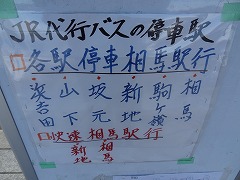 JR代行バスの停車駅
□各駅停車相馬駅行
浜吉田
山下
坂元
新地
駒ヶ嶺
相馬
□快速相馬駅行
新地
相馬